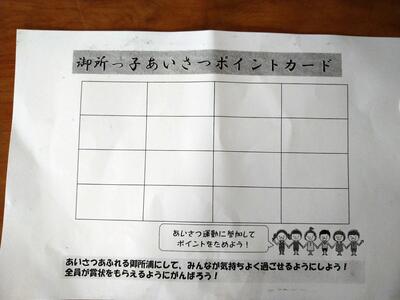 御所っ子あいさつポイントカード
あいさつ運動に参加して
ポイントをためよう！
あいさつあふれる御所浦にして、みんなが気持ちよく過ごせるようにしよう！
全員が賞状をもらえるようにがんばろう！